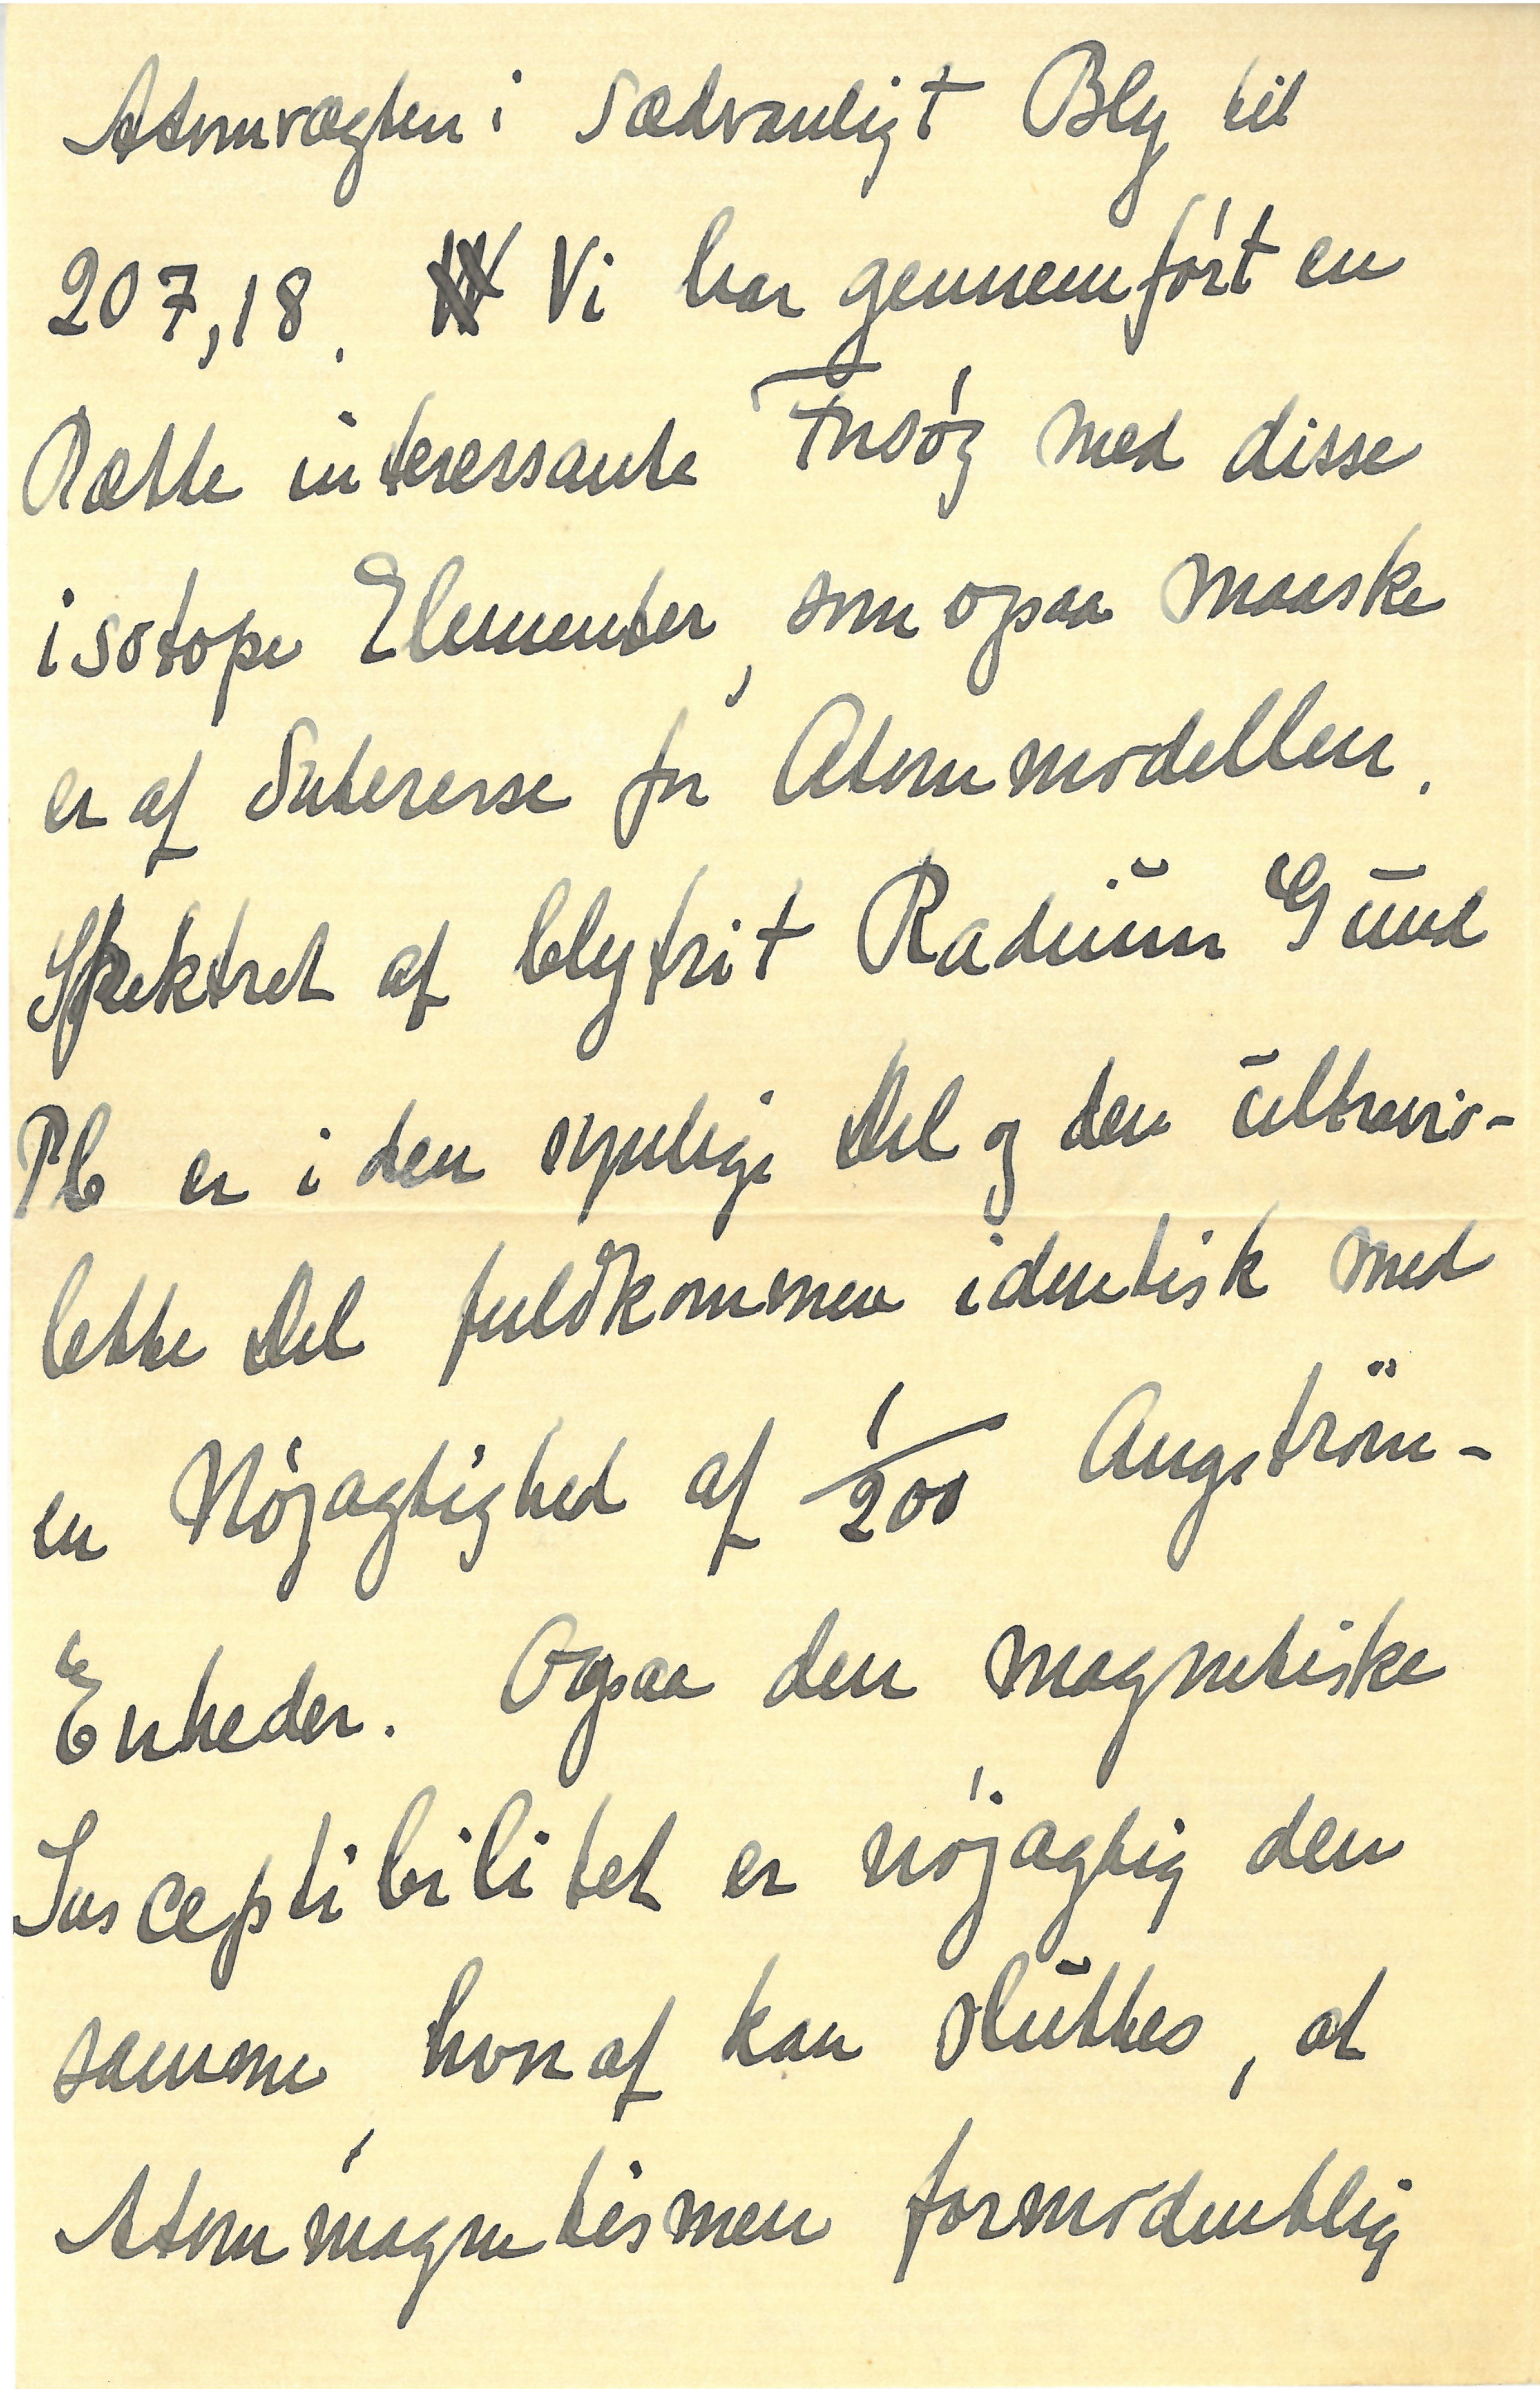 Atomvægten i sædvanligt Bly til
207,18. Vi har gennemført en
Række interessante Forsøg med disse
isotope Elementer, som ogsaa maaske
er af Interesse for Atommodellen.
Spektret af blyfrit Radium G und
Pb er i den synlige Del og den ultravio-
lette Del fuldkommen identisk med
en Nøjagtighed af 1/200 Angström-
Enheder. Ogsaa den magnetiske
Susceptibilitet er nøjagtig den
samme, hvoraf kan sluttes, at
Atommagnetismen formodentlig